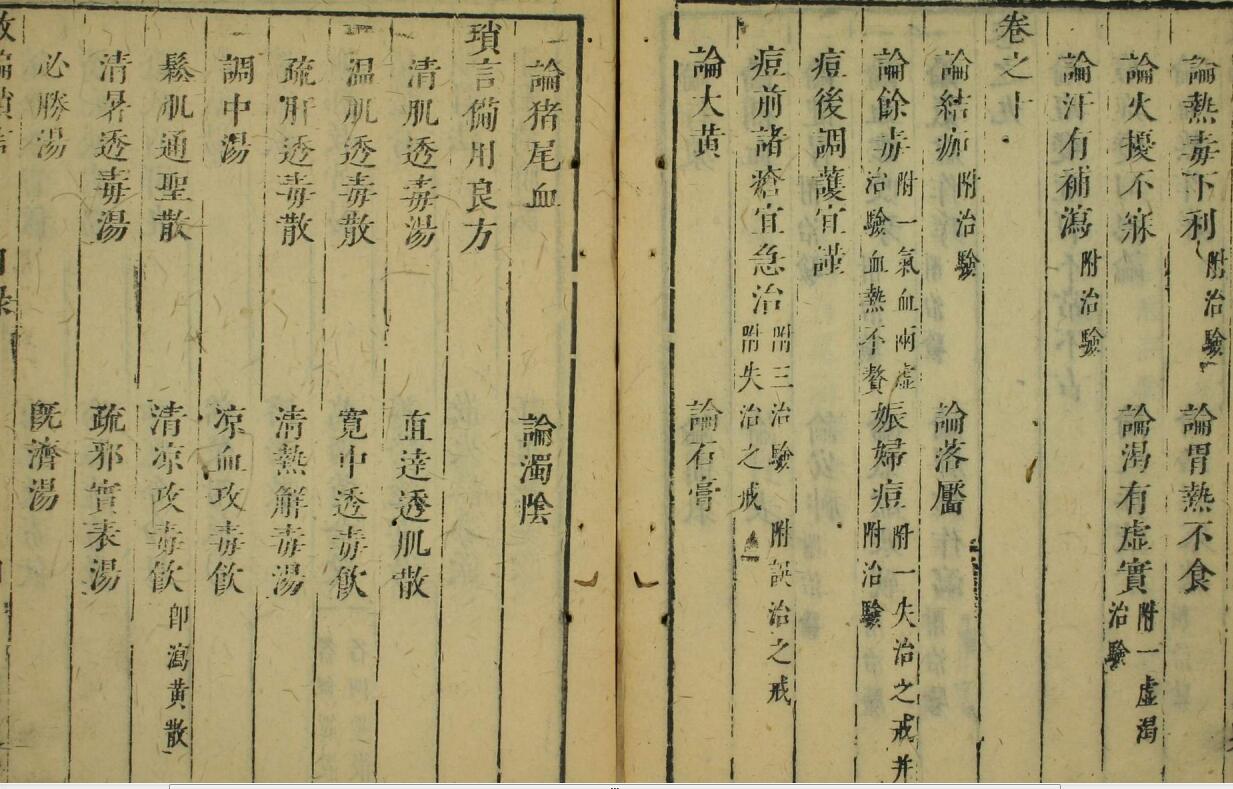 論熱毒下利附治驗 論胃熱不食
論火擾不寐 論渴有虛實附一虛渴治驗
論汗有補瀉附治驗
卷之十
論結痂附治驗 論落靨
論餘毒附一氣血兩虛治驗血熱不贅 娠婦痘附一失治之戒并附治驗
痘後調護宜謹
痘前諸瘡宜急治附三治驗附誤治之戒附失治之戒
論大黃 論石膏
論猪尾血 論濁陰
瑣言備用良方
清肌透毒湯 直達透肌散
温肌透毒散 寛中透毒飲
疏肝透毒散 清熱解毒湯
調中湯 凉血攻毒飲
鬆肌通聖散 清凉攻毒飲卽瀉黃散
清暑透毒湯 疏邪實表湯
必勝湯 旣濟湯